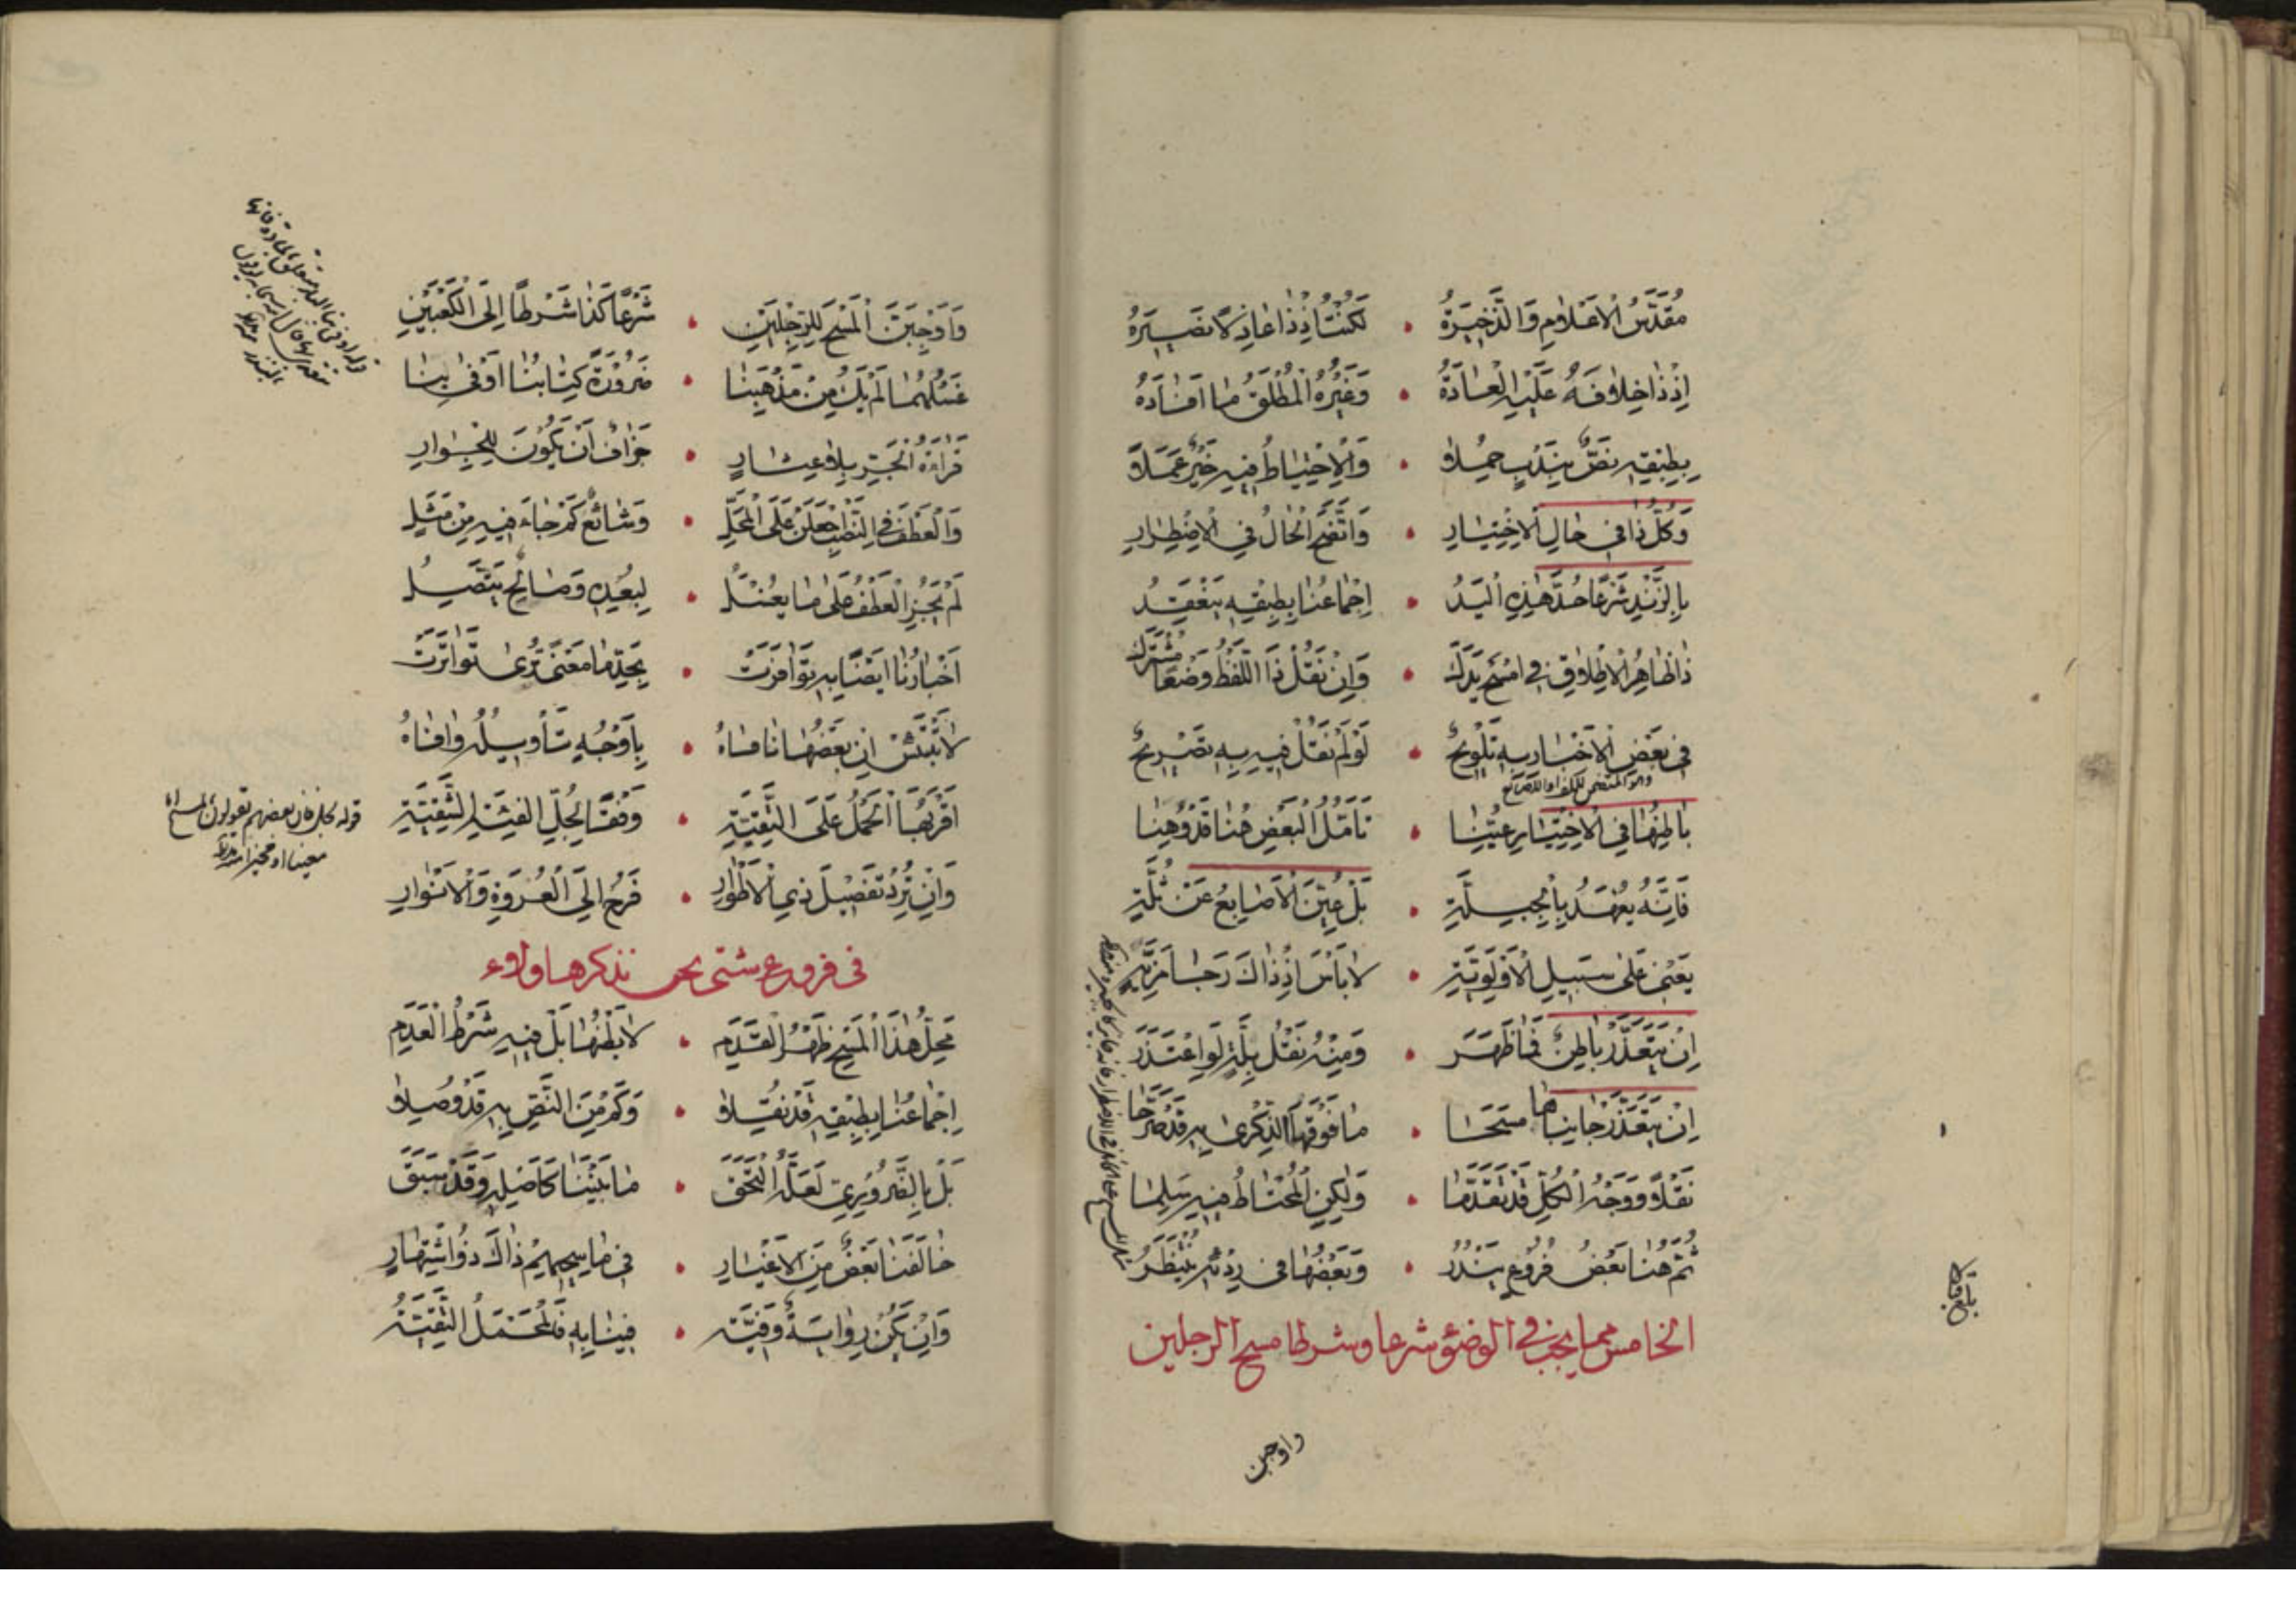 مُقَدَّسُ الْاَعْلَامِ وَالذَّخِيرَةُ • لَكُنْتُ اِذْ ذَا عَاذِلًا نَصِيرَهُ
اِذْ ذَا خِلَافَهُ عَلَيْهِ الْعَادَةُ • وَغَيْرُهُ الْمُطْلَقُ مَا اَفَادَهُ
بِطِبْقِهِ نَصٌّ بِنَدْبٍ حُمِلَا • وَالْاِحْتِيَاطُ فِيهِ خَيْرٌ عَمَلًا
وَكُلُّ ذَا فِي حَالِ الْاِخْتِيَارِ • وَاتَّضَحَ الْحَالُ فِي الْاِضْطِرَارِ
بِالزَّنْدِ شَرْعًا حُدَّ هٰذِهِ الْيَدُ • اِجْمَاعُنَا بِطِبْقِهِ يَنْعَقِدُ
ذَا ظَاهِرُ الْاِطْلَاقِ فِي امْسَحْ يَدَكْ • وَاِنْ نَقُلْ ذَا اللَّفْظُ وَضْعًا مُشْتَرَكْ
فِي بَعْضِ الْاَخْبَارِ بِهِ تَلْوِيحٌ • لَوْ لَمْ نَقُلْ فِيهِ بِهِ تَصْرِيحٌ
بَاطِنُهَا فِي الْاِخْتِيَارِ عُيِّنَا • تَاَمُّلُ الْبَعْضِ هُنَا قَدْ وَهَنَا
فَاِنَّهُ يُعْهَدُ بِالْجِبِلَّةِ • بَلْ عُيِّنَ الْاَصَابِعُ عَنْ ثُلَّةٍ
يَعْنِي عَلٰى سَبِيلِ الْاَوْلَوِيَّةِ • لَا بَأْسَ اِذْ ذَاكَ رَجَا مَزِيَّةٍ
اِنْ يَتَعَذَّرْ بَاطِنٌ فَمَا ظَهَرَ • وَمِنْهُ نَقْلُ بِلَّةٍ لَوِ اعْتَذَرَ
اِنْ يَتَعَذَّرْ جَانِبَاهَا مَسَحَا • مَا فَوْقَهَا الذِّكْرٰى بِهِ قَدْ صَرَّحَا
نَقْلًا وَوَجْهُ الْكُلِّ قَدْ تَقَدَّمَا • وَلٰكِنِ الْمُحْتَاطُ فِيهِ سَلِمَا
ثُمَّ هُنَا بَعْضُ فُرُوعٍ يَنْدُرُ • وَبَعْضُهَا فِي يُنْتَظَرُ
الخامس مما يجب في الوضوء شرعا وشرطا مسح الرجلين
واوجبن
وَاَوْجِبَنَّ الْمَسْحَ لِلرِّجْلَيْنِ • شَرْعًا كَذَا شَرْطًا اِلَى الْكَعْبَيْنِ
غَسْلُهُمَا لَمْ يَكُ مِنْ مَذْهَبِنَا • ضَرُورَةً كِتَابُنَا اَوْفٰى بِنَا
قَرَاءَةُ الْجَرِّ بِلَا عِثَارٍ • جَزَافٌ اَنْ يَكُونَ لِلْجِوَارِ
وَالْعَطْفَ فِي النَّصْبِ اجْعَلَنْ عَلَى الْمَحَلِّ • وَشَائِعٌ كَمْ جَاءَ فِيهِ مِنْ مَثَلِ
لَمْ يَجُزِ الْعَطْفُ عَلٰى مَا يُغْسَلُ • لِبُعْدِهِ وَصَالِحٍ يَتَّصِلُ
اَخْبَارُنَا اَيْضًا بِهِ تَوَافَرَتْ • بِحَدِّ مَا مَعْنًى تُرٰى تَوَاتَرَتْ
لَا تَبْتَئِسْ اِنْ بَعْضُهَا نَافَاهُ • بِاَوْجُهٍ تَأْوِيلُهُ وَافَاهُ
اَقْرَبُهَا الْحَمْلُ عَلَى التَّقِيَّةِ • وَفْقًا لِجُلِّ الْفِئَةِ الشَّقِيَّةِ
وَاِنْ تُرِدْ تَفْصِيلَ ذِي الْاَطْوَارِ • فَرُحْ اِلَى الْعُرْوَةِ وَالْاَنْوَارِ
في فروع شتى نحن نذكرها ولاء
مَحَلُّ هٰذَا الْمَسْحِ ظَهْرُ الْقَدَمِ • لَا بَطْنُهَا بَلْ فِيهِ شَرْطُ الْعَدَمِ
اِجْمَاعُنَا بِطِبْقِهِ قَدْ نُقِلَا • وَكَمْ مِنَ النَّصِّ بِهِ قَدْ وُصِلَا
بَلْ بِالضَّرُورِيِّ لَعَلَّهُ الْتَحَقَ • مَا بَيْنَنَا كَاَصْلِهِ وَقَدْ سَبَقَ
خَالَفَنَا بَعْضٌ مِنَ الْاَغْيَارِ • فِي مَا سِحِيهِمْ ذَاكَ ذُو اشْتِهَارٍ
وَاِنْ يَكُنْ رِوَايَةٌ وَفِيَّهْ • فِينَا بِهِ فَلْتُحْتَمَلُ التَّقِيَّهْ
قوله لجل فان بعضهم يقولون بالمسح
معينا او مخيرا